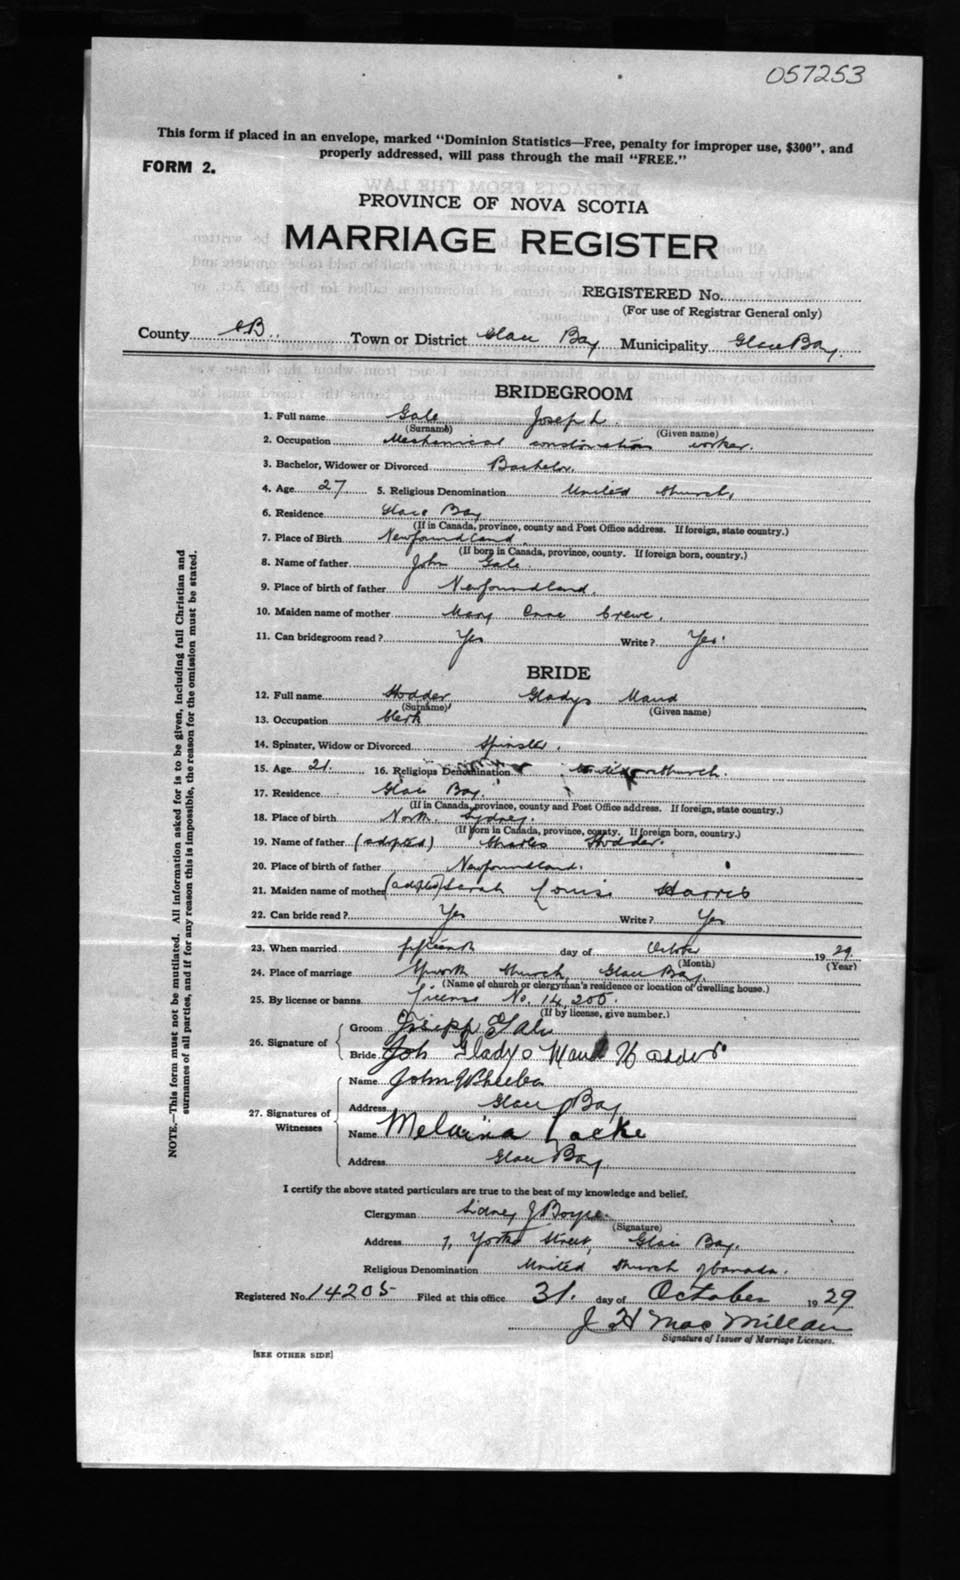 057253
This form if placed in an envelope, marked "Dominion Statistics—Free, penalty for improper use, $300", and
properly addressed, will pass through the mail "FREE."
FORM 2.
PROVINCE OF NOVA SCOTIA
MARRIAGE REGISTER
REGISTERED No.
(For use of Registrar General only)
County C.B. Town or District Glace Bay Municipality Glace Bay.
BRIDEGROOM
1. Full name Gale Joseph.
(Surname) (Given name)
2. Occupation Mechanical construction worker.
3. Bachelor, Widower or Divorced Bachelor.
4. Age 27 5. Religious Denomination United Church.
6. Residence Glace Bay
(If in Canada, province, county and Post Office address. If foreign, state country.)
7. Place of Birth Newfoundland.
(If born in Canada, province, county. If foreign born, country.)
8. Name of father John Gale.
9. Place of birth of father Newfoundland.
10. Maiden name of mother Mary Anne Crewe.
11. Can bridegroom read? Yes Write? Yes.
BRIDE
12. Full name Hodder Gladys Maud
(Surname) (Given name)
13. Occupation Clerk
14. Spinster, Widow or Divorced Spinster.
15. Age 21. 16. Religious Denomination United Church.
17. Residence Glace Bay.
(If in Canada, province, county and Post Office address. If foreign, state country.)
18. Place of birth North Sydney.
(If born in Canada, province, county. If foreign born, country.)
19. Name of father (adopted) Charles Hodder.
20. Place of birth of father Newfoundland.
21. Maiden name of mother (adopted) Sarah Louise Harris
22. Can bride read? Yes Write? Yes
23. When married fifteenth day of October 1929
(Month) (Year)
24. Place of marriage Epworth Church, Glace Bay.
(Name of church or clergyman's residence or location of dwelling house.)
25. By license or banns License No. 14,205.
(If by license, give number.)
26. Signature of
Groom Joseph Gale
Bride Joh Gladys Maud Hodder
27. Signatures of Witnesses
Name John J
Address Glace Bay
Name Melvina Locke
Address Glace Bay.
I certify the above stated particulars are true to the best of my knowledge and belief.
Clergyman Sidney J Boyce.
(Signature)
Address 7, York Street, Glace Bay.
Religious Denomination United Church of Canada.
Registered No. 14205 Filed at this office 31. day of October 1929
J H MacMillan
Signature of Issuer of Marriage Licenses.
[SEE OTHER SIDE]
NOTE.—This form must not be mutilated. All information asked for is to be given, including full Christian and
surnames of all parties, and if for any reason this is impossible, the reason for the omission must be stated.